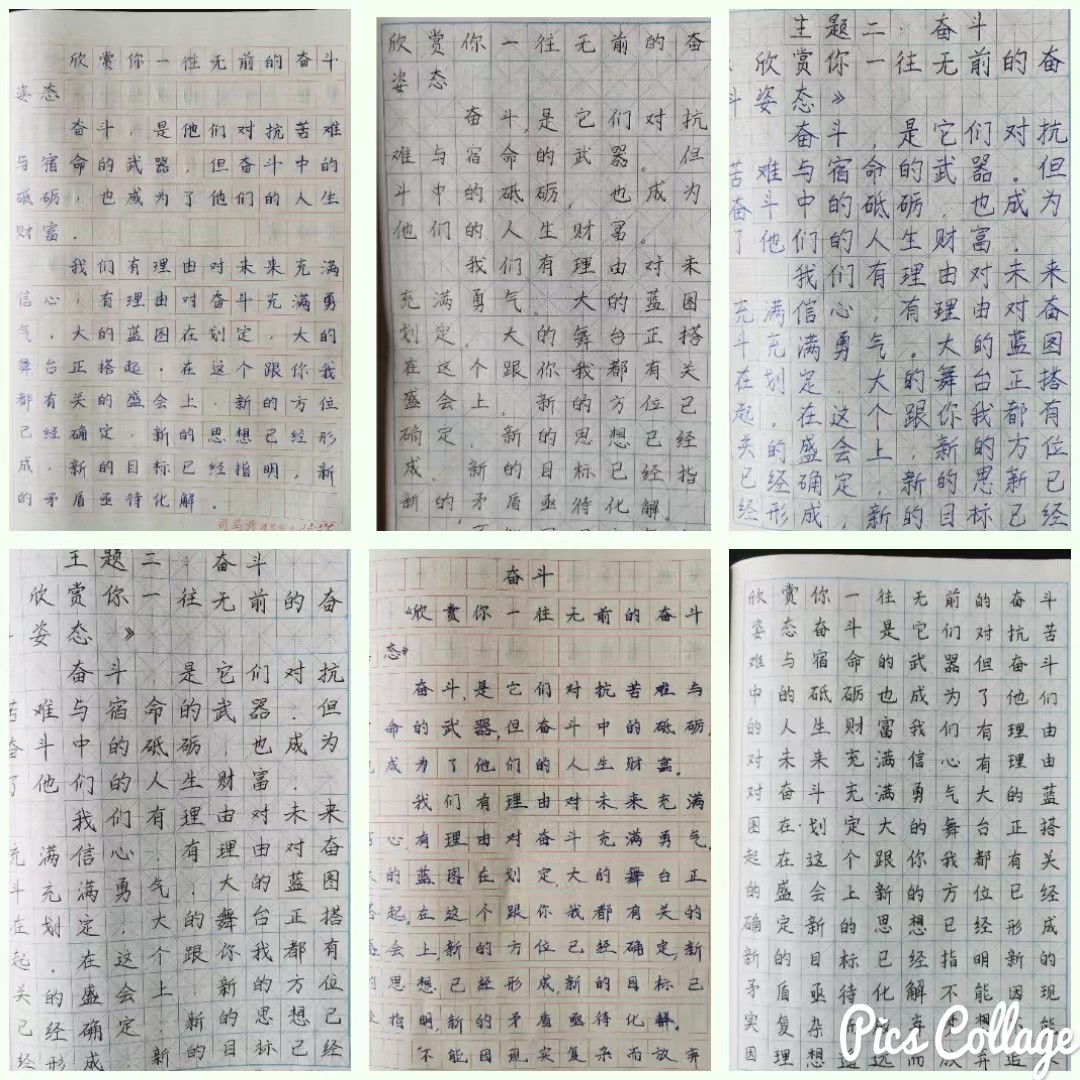 欣赏你一往无前的奋斗
姿态
奋斗，是他们对抗苦难
与宿命的武器，但奋斗中的
砥砺，也成为了他们的人生
财富．
我们有理由对未来充满
信心，有理由对奋斗充满勇
气．大的蓝图在划定，大的
舞台正搭起．在这个跟你我
都有关的盛会上．新的方位
已经确定，新的思想已经形
成，新的目标已经指明，新
的矛盾亟待化解．
欣赏你一往无前的奋
姿态
奋斗，是它们对抗
难与宿命的武器。但
斗中的砥砺，也成为
他们的人生财富。
我们有理由对未
充满勇气。大的蓝图
划定，大的舞台正搭
在这个跟你我都有关
盛会上，新的方位已
确定，新的思想已经
成，新的目标已经指
新的，矛盾亟待化解。
主题二：奋斗
欣赏你一往无前的奋
斗姿态》
奋斗，是它们对抗
苦难与宿命的武器．但
奋斗中的砥砺，也成为
了他们的人生财富．
我们有理由对未来
充满信心，有理由对奋
斗充满勇气．大的蓝图
在划定．大的舞台正搭
起．在这个跟你我都有
关的盛会上，新的方位
已经确定，新的思新已
经形成，新的目标已经
主题二：奋斗
欣赏你一往无前的奋
姿态》
奋斗 是它们对抗
苦难与宿命的武器．但
奋斗中的砥砺，也成为
了他们的人生财富．
我们有理由对未来
充满信心，有理由对奋
斗充满勇气，大的蓝图
在划定，大的舞台正搭
起．在这个跟你我都有
关的盛会上，新的方位
已经确定，新的思想已
经形成，新的目标已经
奋斗
《欣赏你一往无前的奋斗
态》
奋斗，是它们对抗苦难与
命的武器，但奋斗中的砥砺，
也成为了他们的人生财富。
我们有理由对未来充满
心有理由对奋斗充满勇气，
大的蓝图在划定，大的舞台正
搭起，在这个跟你我都有关的
盛会上新的方位已经确定，新
的思想已经形成，新的目标已
经指明，新的矛盾亟待化解。
不能因现实复杂而放弃
欣赏你一往无前的奋斗
姿态奋斗是它们对抗苦
难与宿命的武器但奋斗
中的砥砺也成为了他们
的人生财富我们有理由
对未来充满信心有理由
对奋斗充满勇气大的蓝
图在划定大的舞台正搭
起在这个跟你我都有关
的盛会上新的方位已经
确定新的思想已经形成
新的目标已经指明新的
矛盾亟待化解不能因现
实复杂
因理想
Pics Collage